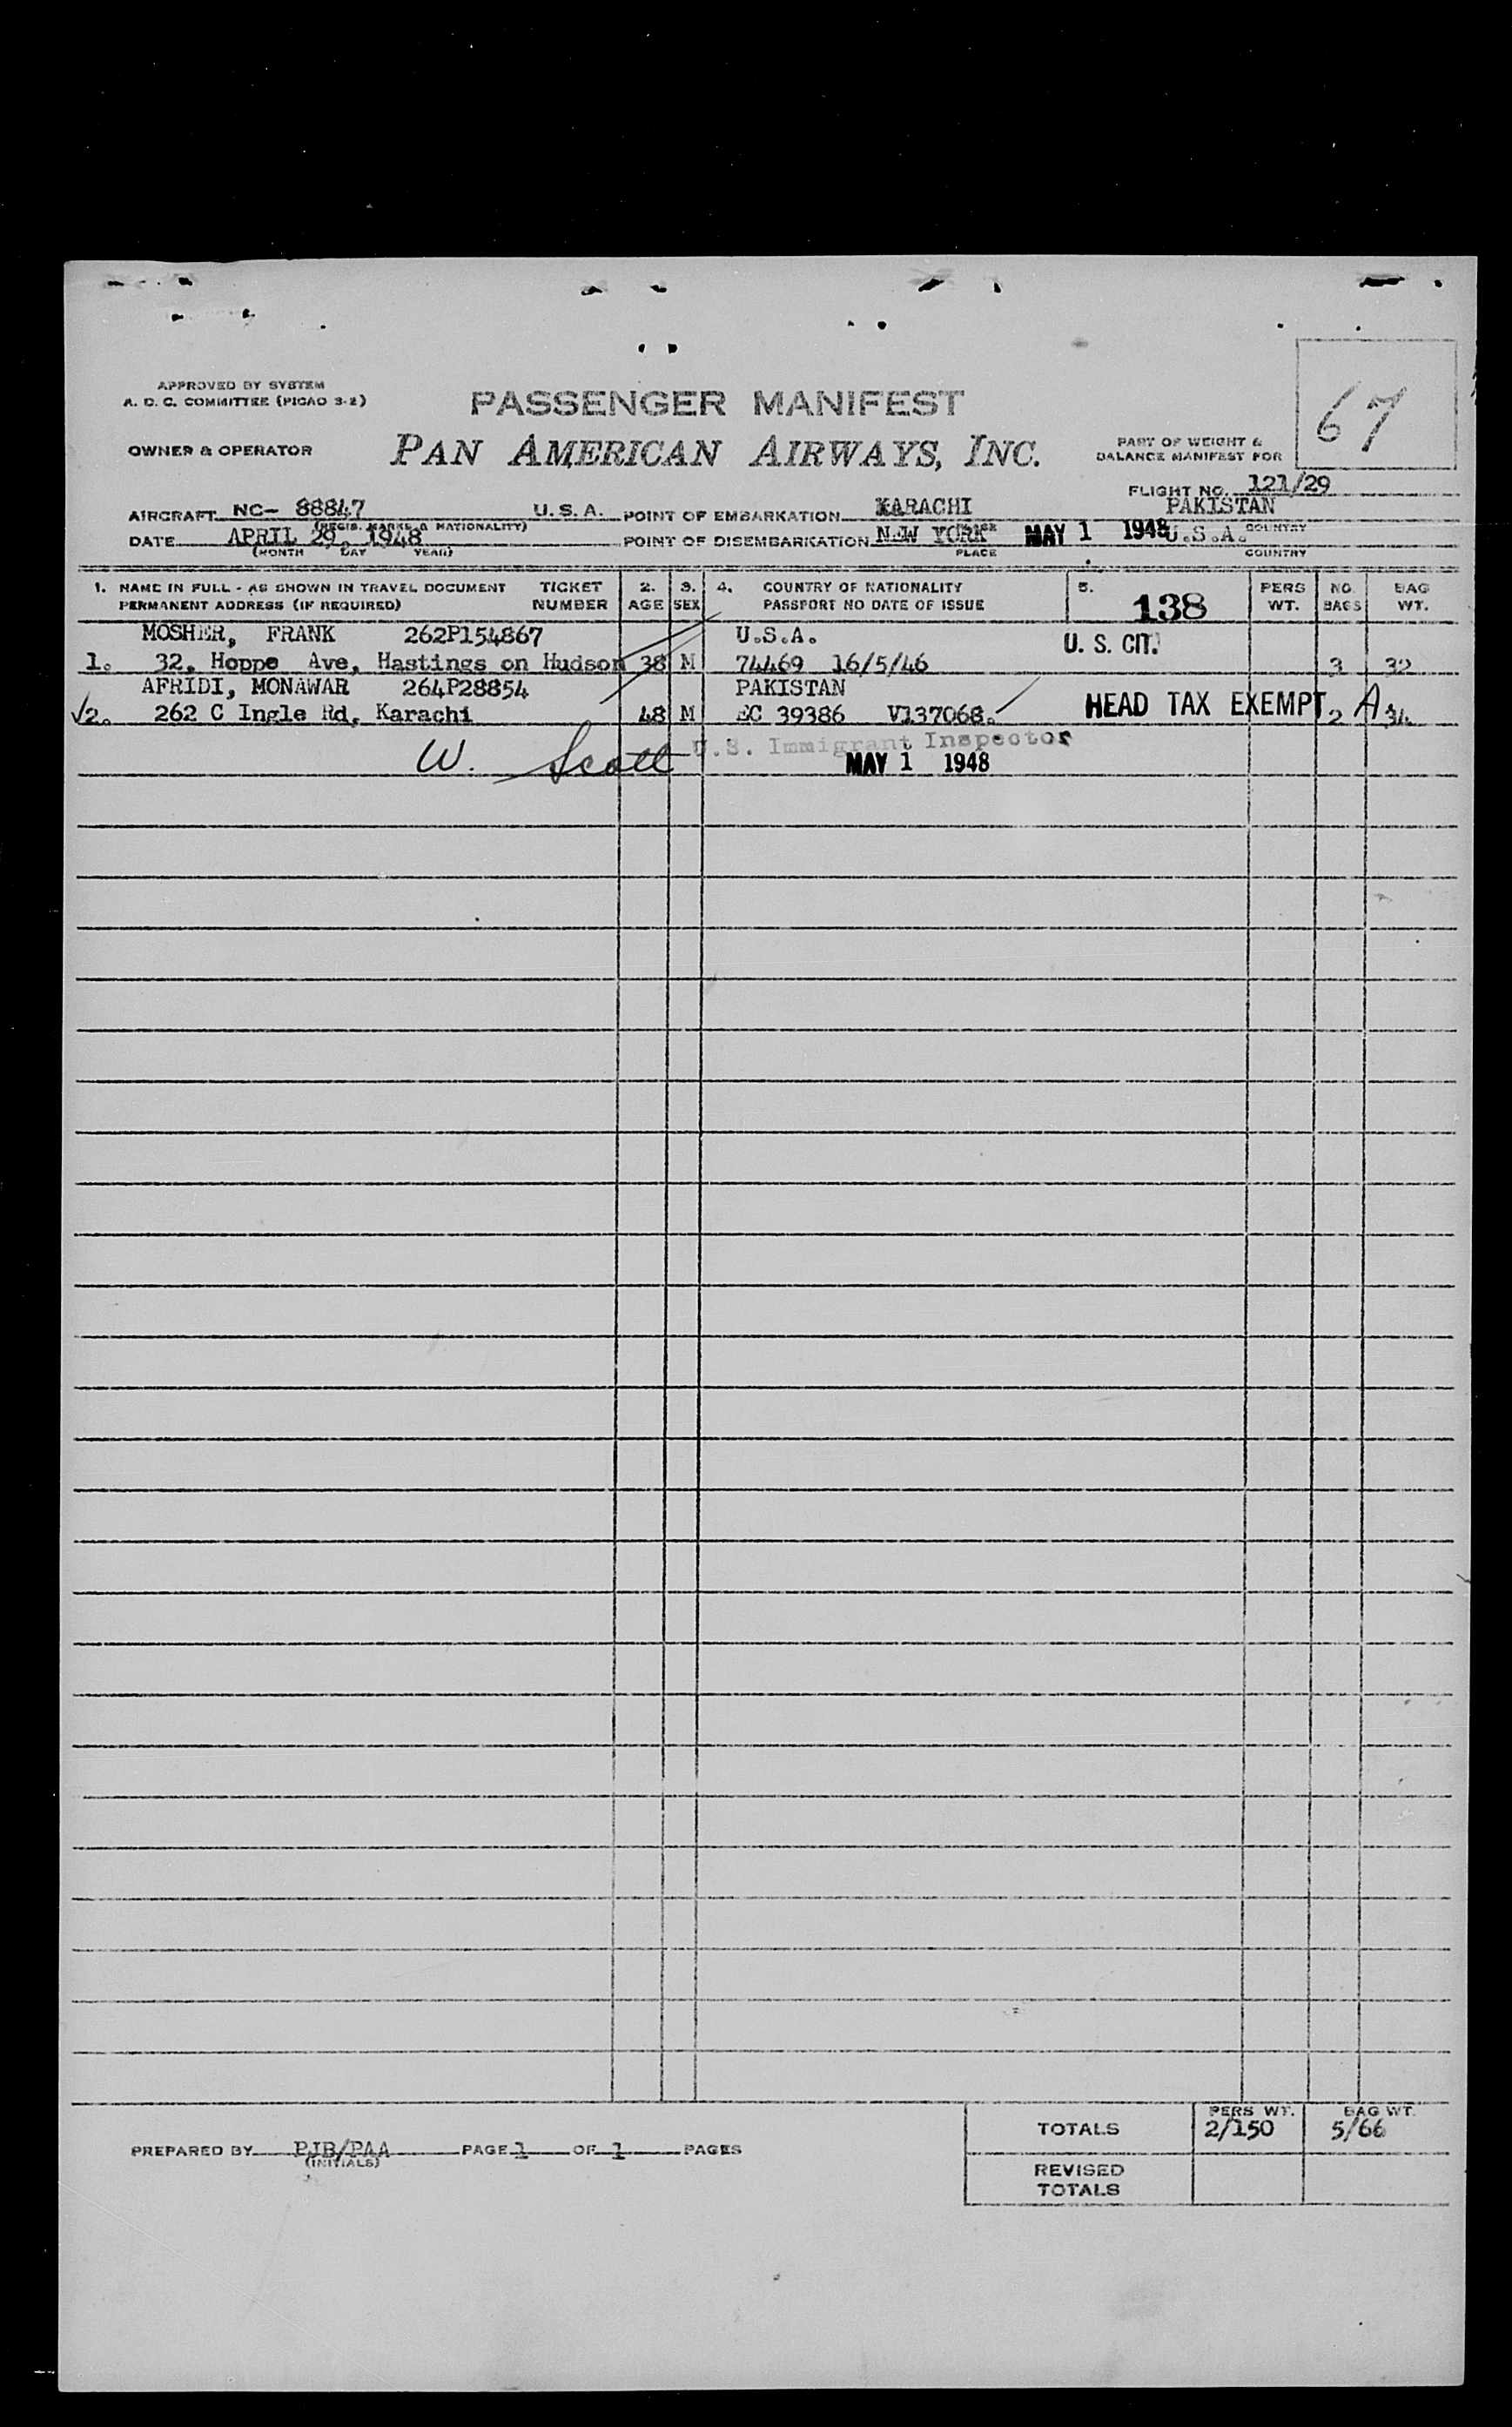 APPROVED BY SYSTEM
A. O. C. COMMITTEE (PICAO 3-2)
PASSENGER MANIFEST
67
OWNER & OPERATOR
PAN AMERICAN AIRWAYS, INC.
PART OF WEIGHT &
BALANCE MANIFEST FOR
FLIGHT NO. 121/29
AIRCRAFT NC- 88847 U. S. A. POINT OF EMBARKATION KARACHI PAKISTAN
(REGIS. MARKS & NATIONALITY) COUNTRY
DATE APRIL 29, 1948 POINT OF DISEMBARKATION NEW YORK MAY 1 1948 U.S.A.
(MONTH DAY YEAR) PLACE COUNTRY
1. NAME IN FULL - AS SHOWN IN TRAVEL DOCUMENT TICKET 2. 3. 4. COUNTRY OF NATIONALITY 5. 138 PERS NO. BAG
PERMANENT ADDRESS (IF REQUIRED) NUMBER AGE SEX PASSPORT NO DATE OF ISSUE WT. BAGS WT.
MOSHER, FRANK 262P154867 U.S.A. U. S. CIT.
1. 32, Hoppe Ave, Hastings on Hudson 38 M 74469 16/5/46 3 32
AFRIDI, MONAWAR 264P28854 PAKISTAN
√2. 262 C Ingle Rd, Karachi 48 M EC 39386 V137068. HEAD TAX EXEMPT 2 A 34
W. Scott U.S. Immigrant Inspector
MAY 1 1948
PERS WT. BAG WT.
TOTALS 2/150 5/66
PREPARED BY PJB/PAA PAGE 1 OF 1 PAGES
(INITIALS)
REVISED
TOTALS